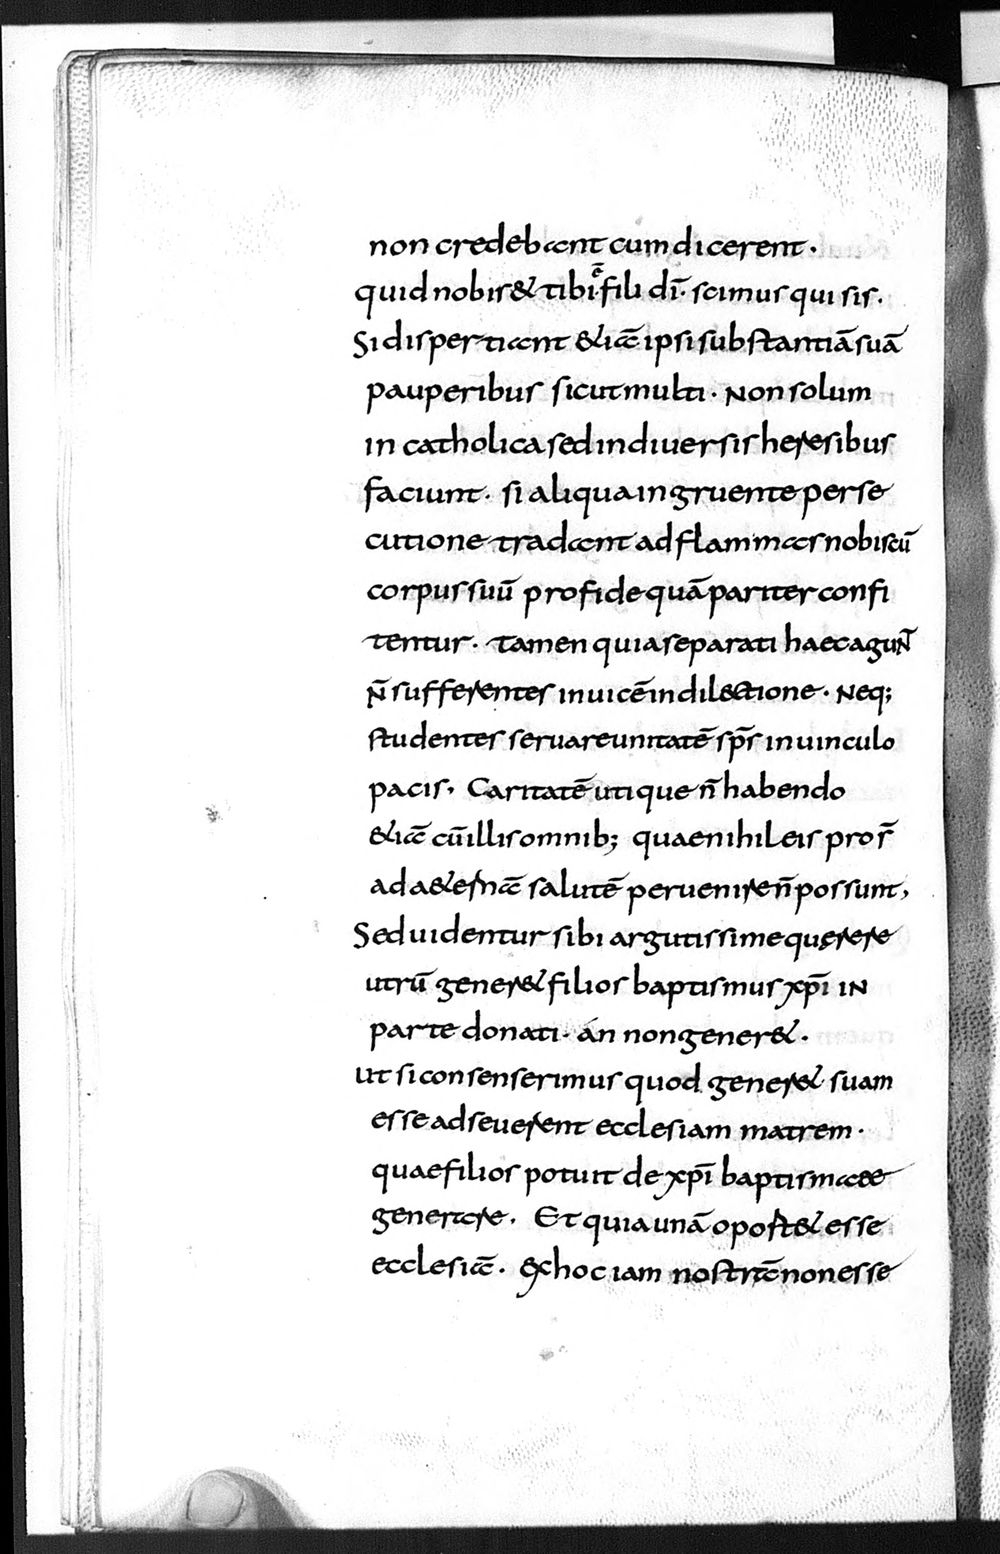 non credebant cum dicerent·
quid nobis & tibi ē fili dī· scimus qui sis·
Si dispertiant & iā ipsi substantiā suā
pauperibus sicut multi· Non solum
in catholica sed in diuersis heresibus
faciunt· si aliqua ingruente perse
cutione tradant ad flammas nobiscū
corpus suū pro fide quā pariter confi
tentur· tamen quia separati haec agunт̄
n̄ sufferentes inuicē in dilectione· Neq;
studentes seruare unitatē sp̄s in uinculo
pacis· Caritatē utique n̄ habendo
&iā cū illis omnib; quae nihil eis pros̄
ad a&ernā salutē peruenire n̄ possunt,
Sed uidentur sibi argutissime querere
utrū gener& filios baptismus xp̄i in
parte donati· án non gener&·
Ut si consenserimus quod gener& suam
esse adseuerent ecclesiam matrem·
quae filios potuit de xp̄i baptismate
generare· Et quia unā oport& esse
ecclesiā· ex hoc iam nostrā non esse